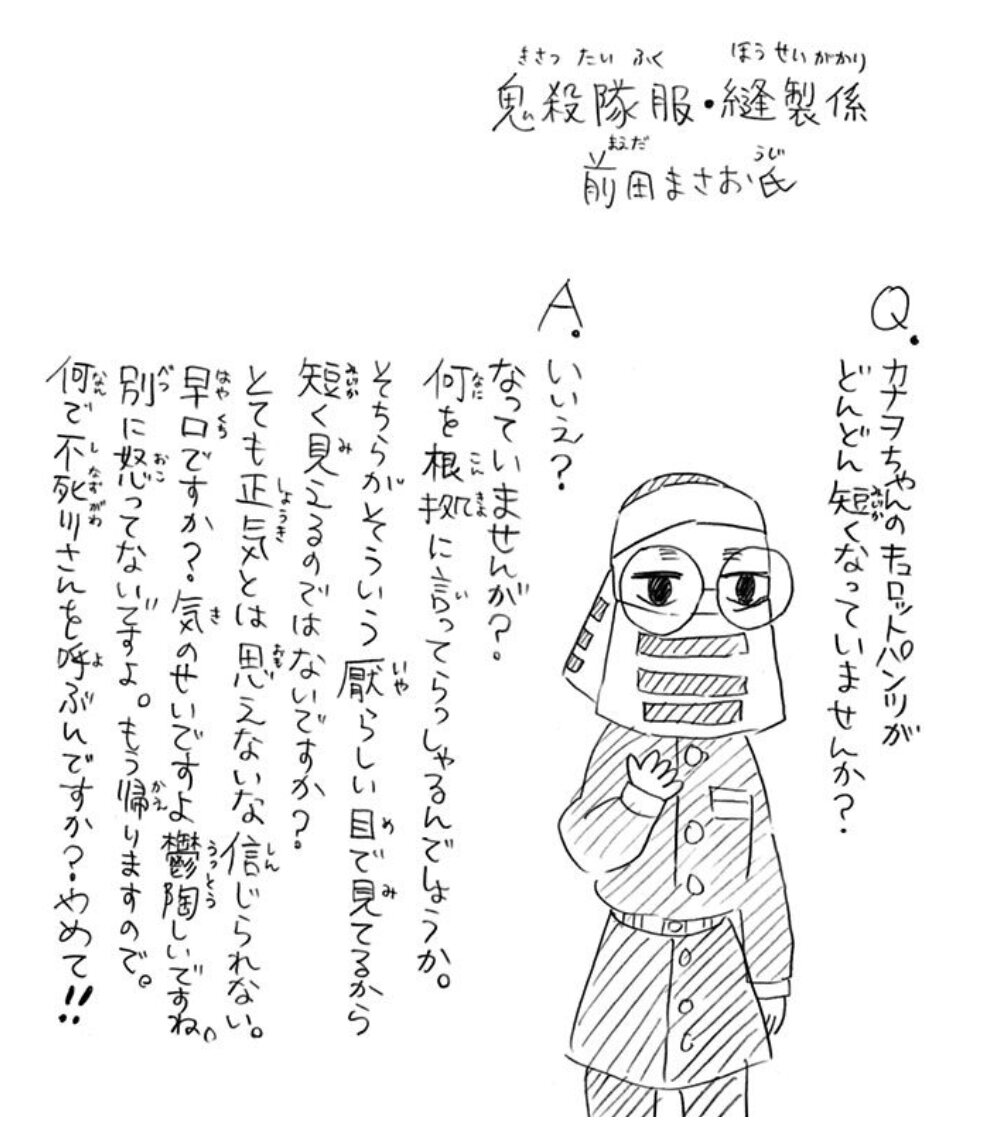 鬼殺隊服・縫製係
前田まさお氏
Q.
カナヲちゃんのキュロットパンツが
どんどん短くなっていませんか?
A.
いいえ?
なっていませんが?
何を根拠に言ってらっしゃるんでしょうか。
そちらがそういう厭らしい目で見てるから
短く見えるのではないですか?
とても正気とは思えないな信じられない。
早口ですか?気のせいですよ鬱陶しいですね。
別に怒ってないですよ。もう帰りますので。
何で不死川さんを呼ぶんですか?やめて!!